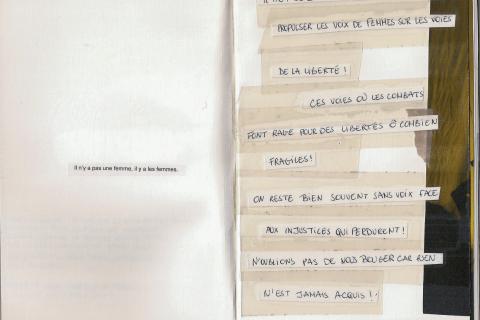 Il n'y a pas une femme, il y a les femmes.
PROPULSER LES VOIX DE FEMMES SUR LES VOIES
DE LA LIBERTÉ !
CES VOIES OÙ LES COMBATS
FONT RAGE POUR DES LIBERTÉS Ô COMBIEN
FRAGILES !
ON RESTE BIEN SOUVENT SANS VOIX FACE
AUX INJUSTICES QUI PERDURENT !
N'OUBLIONS PAS DE NOUS BOUGER CAR RIEN
N'EST JAMAIS ACQUIS !